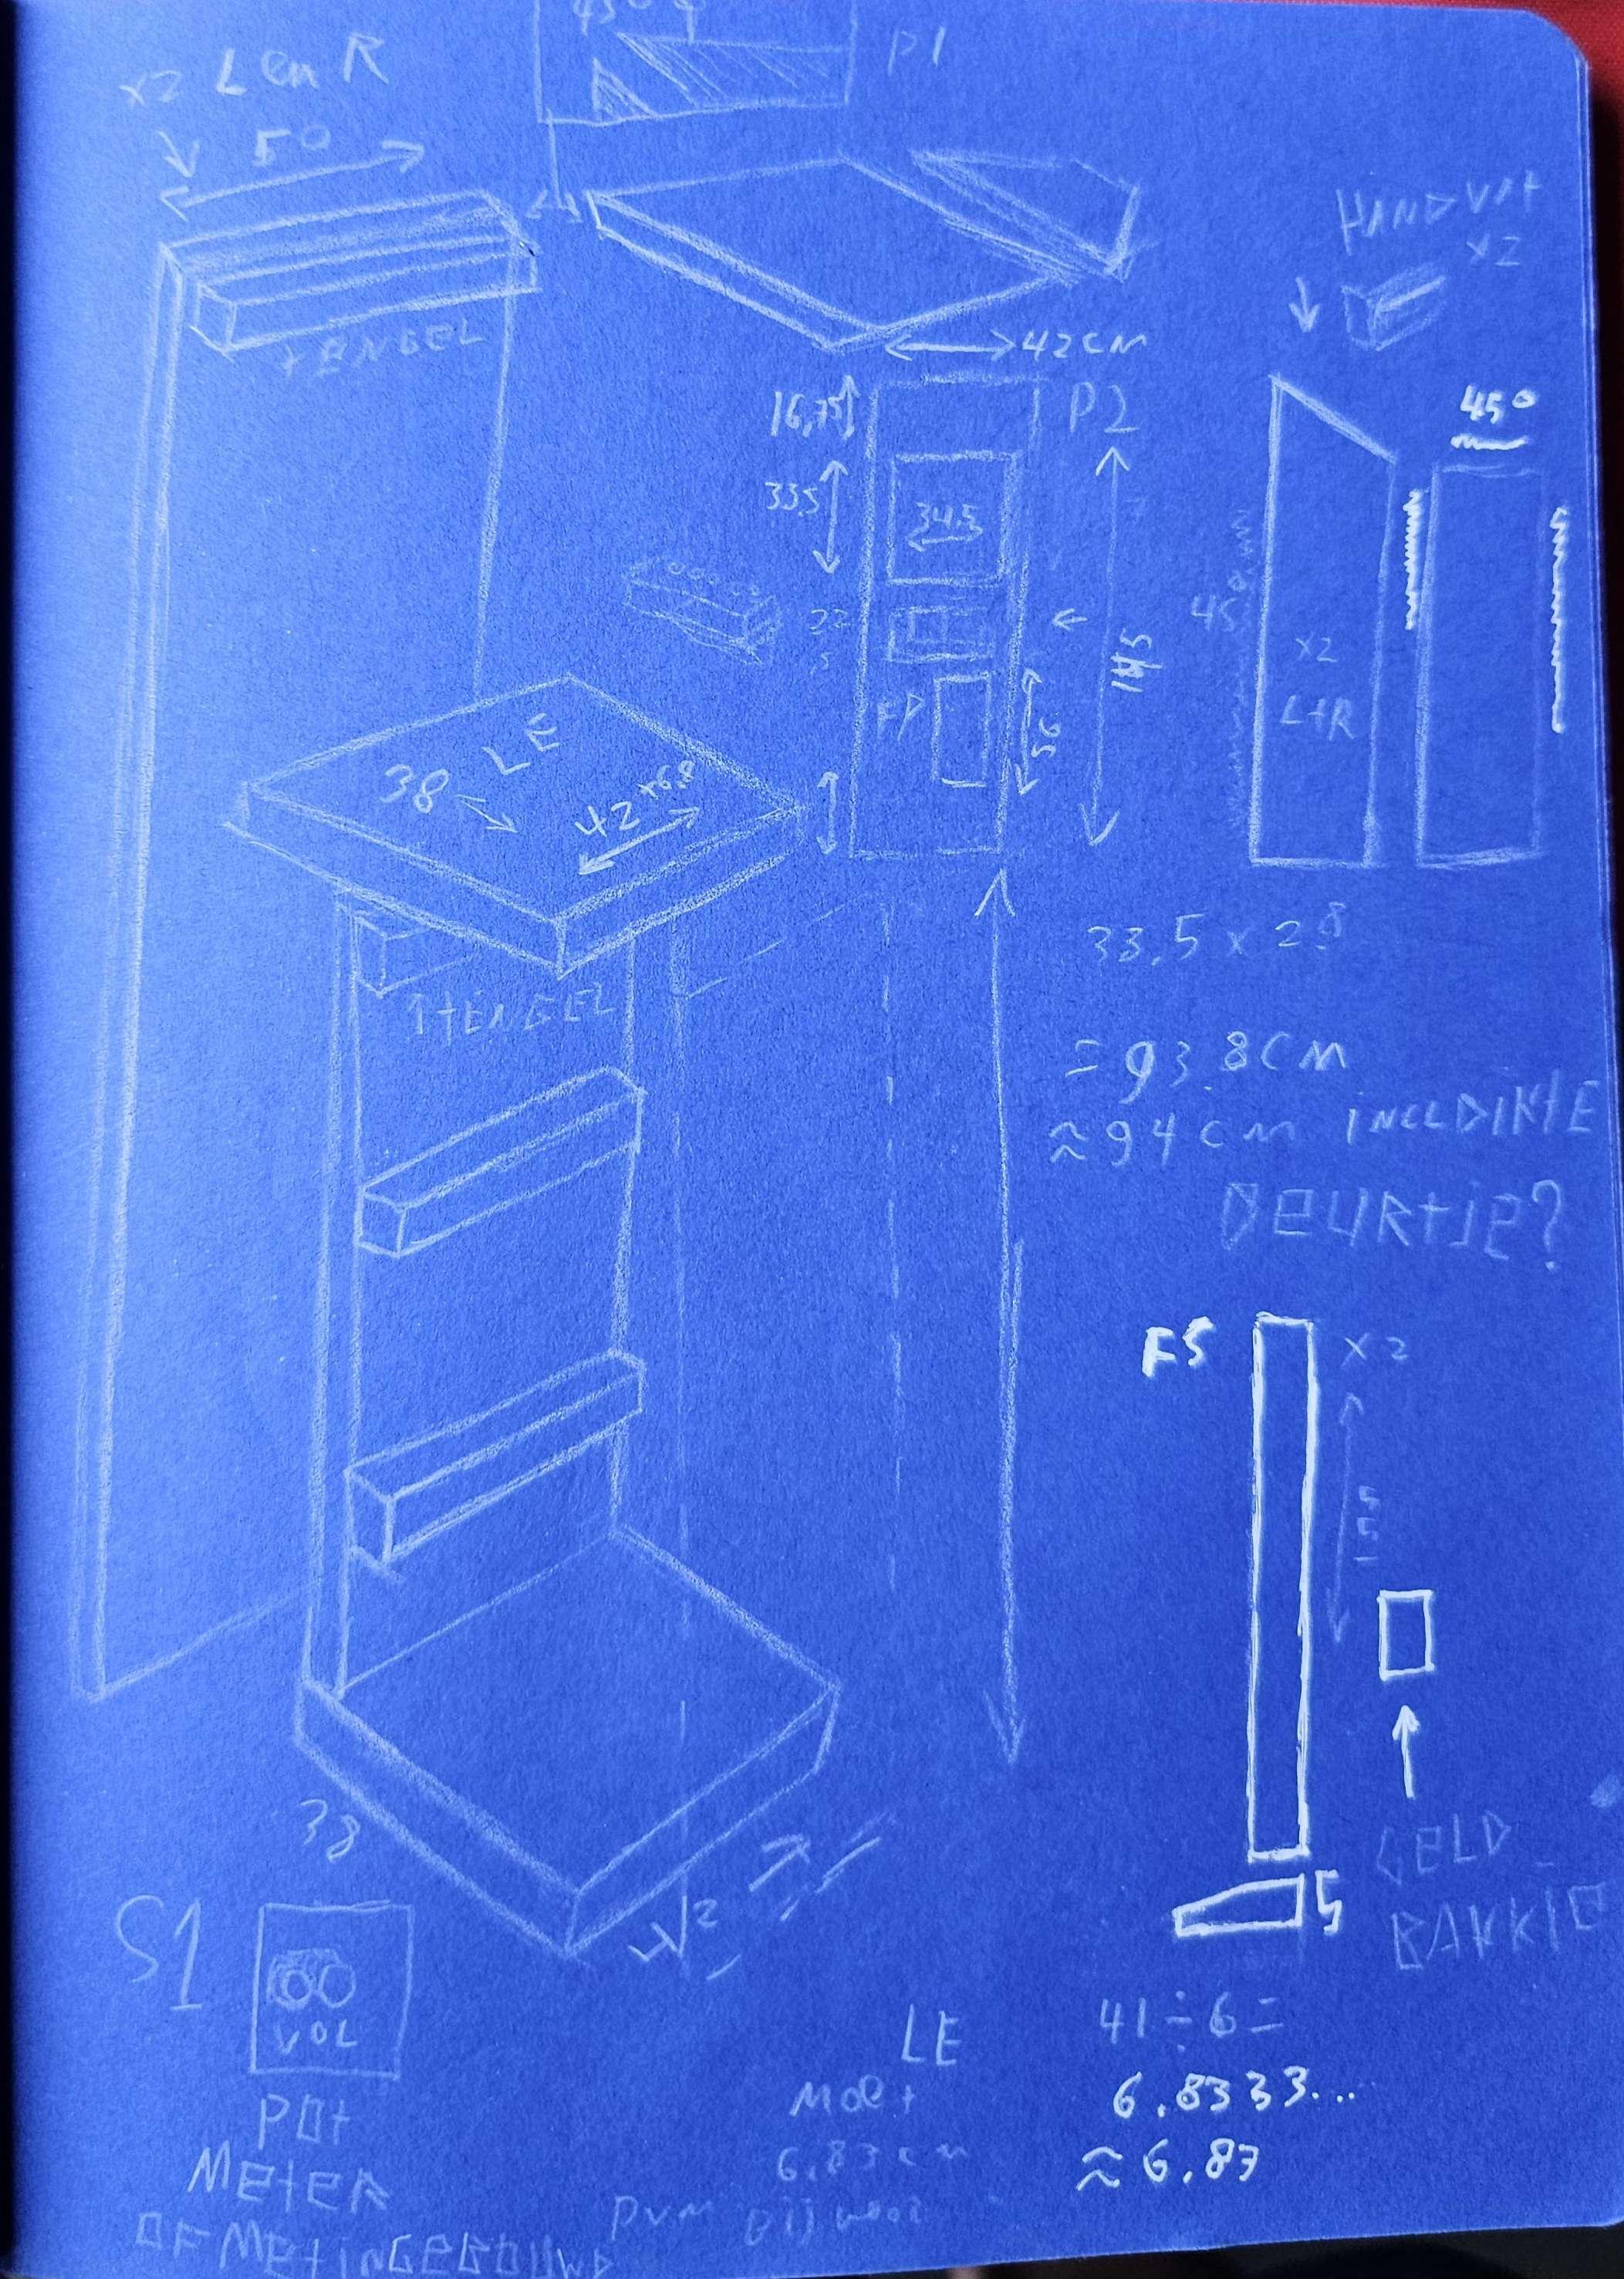 P1
x2 L en R
50
HANDVAT
x2
TENGEL
42 CM
16,75
P2
45°
33.5
34.5
145
45°
x2
L+R
FP
56
LE
38
42
+6.8
33,5 x 2.8
TENGEL
= 93.8 CM
≈ 94 CM INCL DIKTE
DEURTJE?
FS
x2
55
GELD
BAKKIE
38
42
S1
VOL
POT
METER
OF MET INGEBOUWD
LE
MOET
6,83 cm
41 ÷ 6 =
6.8333...
≈ 6,83